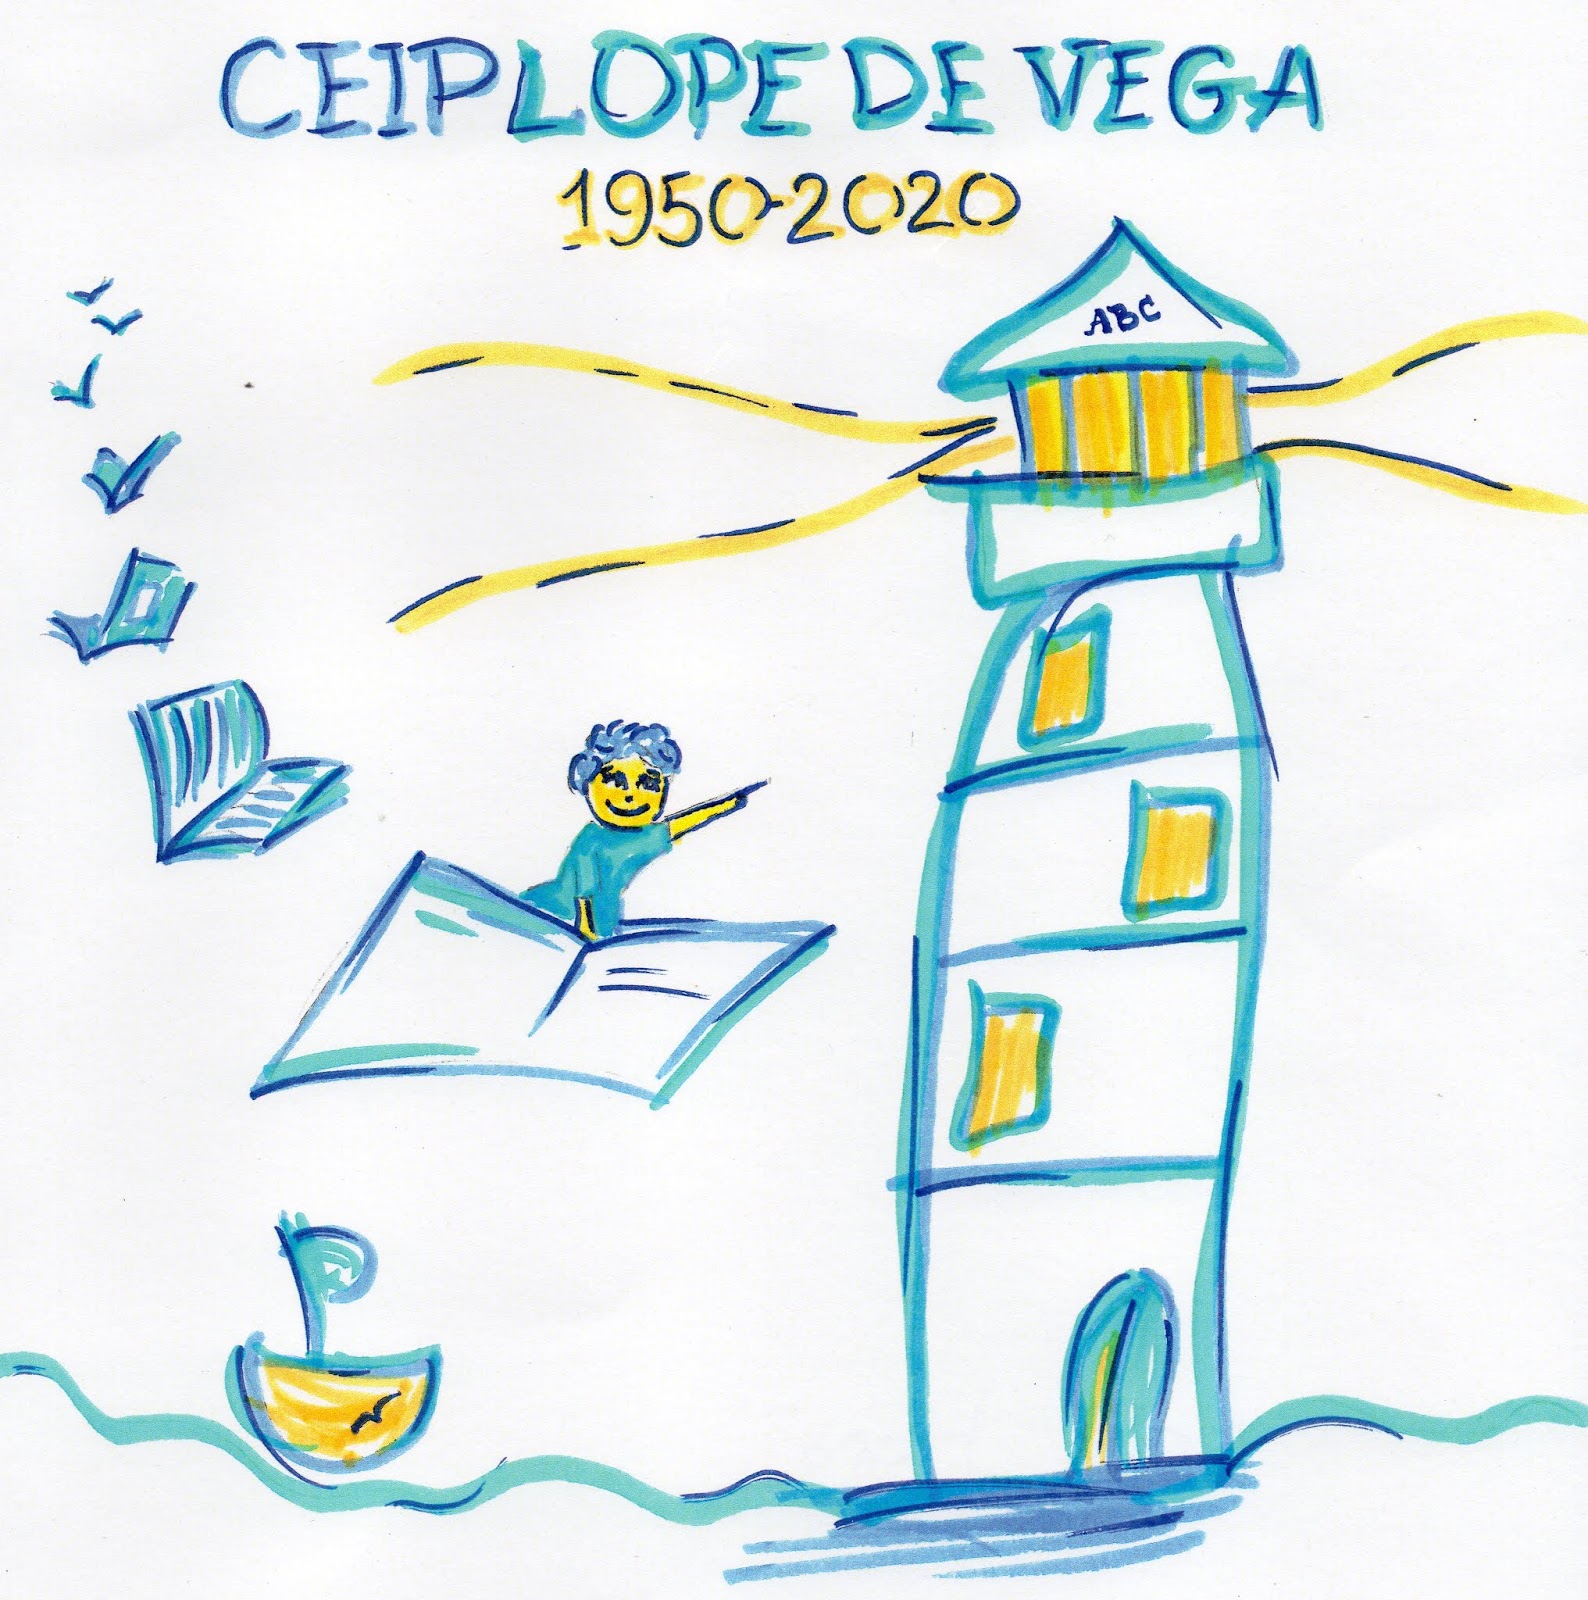 CEIP LOPE DE VEGA
1950-2020
ABC